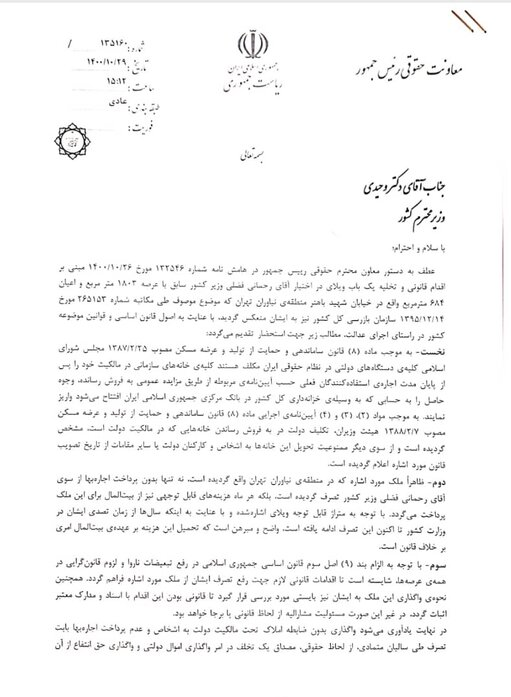 شماره: ۱۳۵۱۶۰ /
تاریخ: ۱۴۰۰/۱۰/۲۹
ساعت: ۱۵:۱۲
طبقه بندی: عادی
فوریت:
جمهوری اسلامی ایران
ریاست جمهوری
معاونت حقوقی رئیس جمهور
بسمه تعالی
جناب آقای دکتر وحیدی
وزیر محترم کشور
با سلام و احترام؛
عطف به دستور معاون محترم حقوقی رییس جمهور در هامش نامه شماره ۱۳۲۵۴۶ مورخ ۱۴۰۰/۱۰/۲۶ مبنی بر
اقدام قانونی و تخلیه یک باب ویلای در اختیار آقای رحمانی فضلی وزیر کشور سابق با عرصه ۱۸۰۳ متر مربع و اعیان
۶۸۴ مترمربع واقع در خیابان شهید باهنر منطقه‌ی نیاوران تهران که موضوع موصوف طی مکاتبه شماره ۲۶۵۱۵۳ مورخ
۱۳۹۵/۱۲/۱۴ سازمان بازرسی کل کشور نیز به ایشان منعکس گردید، با عنایت به اصول قانون اساسی و قوانین موضوعه
کشور در راستای اجرای عدالت، مطالب زیر جهت استحضار تقدیم می‌گردد:
نخست- به موجب ماده (۸) قانون ساماندهی و حمایت از تولید و عرضه مسکن مصوب ۱۳۸۷/۲/۲۵ مجلس شورای
اسلامی کلیه‌ی دستگاه‌های دولتی در نظام حقوقی ایران مکلف هستند کلیه‌ی خانه‌های سازمانی در مالکیت خود را پس
از پایان مدت اجاره‌ی استفاده‌کنندگان فعلی حسب آیین‌نامه‌ی مربوطه از طریق مزایده عمومی به فروش رسانده، وجوه
حاصل را به حسابی که به وسیله‌ی خزانه‌داری کل کشور در بانک مرکزی جمهوری اسلامی ایران افتتاح می‌شود واریز
نمایند. به موجب مواد (۲)، (۳) و (۴) آیین‌نامه‌ی اجرایی ماده (۸) قانون ساماندهی و حمایت از تولید و عرضه مسکن
مصوب ۱۳۸۸/۲/۷ هیئت وزیران، تکلیف دولت در به فروش رساندن خانه‌هایی که در مالکیت دولت است، مشخص
گردیده است و از سوی دیگر ممنوعیت تحویل این خانه‌ها به اشخاص و کارکنان دولت یا سایر مقامات از تاریخ تصویب
قانون مورد اشاره اعلام گردیده است.
دوم- ظاهراً ملک مورد اشاره که در منطقه‌ی نیاوران تهران واقع گردیده است، نه تنها بدون پرداخت اجاره‌بها از سوی
آقای رحمانی فضلی وزیر کشور تصرف گردیده است، بلکه هر ماه هزینه‌های قابل توجهی نیز از بیت‌المال برای این ملک
پرداخت می‌گردد. با توجه به متراژ قابل توجه ویلای اشاره‌شده و با عنایت به اینکه سال‌ها از زمان تصدی ایشان در
وزارت کشور تا اکنون این تصرف ادامه یافته است، واضح و مبرهن است که تحمیل این هزینه بر عهده‌ی بیت‌المال امری
بر خلاف قانون است.
سوم- با توجه به الزام بند (۹) اصل سوم قانون اساسی جمهوری اسلامی در رفع تبعیضات ناروا و لزوم قانون‌گرایی در
همه‌ی عرصه‌ها، شایسته است تا اقدامات قانونی لازم جهت رفع تصرف ایشان از ملک مورد اشاره فراهم گردد. همچنین
نحوه‌ی واگذاری این ملک به ایشان نیز بایستی مورد بررسی قرار گیرد تا قانونی بودن این اقدام با اسناد و مدارک معتبر
اثبات گردد، در غیر این صورت مسئولیت مشارالیه از لحاظ قانونی پا برجا خواهد بود.
در نهایت یادآوری می‌شود واگذاری بدون ضابطه املاک تحت مالکیت دولت به اشخاص و عدم پرداخت اجاره‌بها بابت
تصرف طی سالیان متمادی، از لحاظ حقوقی، مصداق یک تخلف در امر واگذاری اموال دولتی و واگذاری حق انتفاع از آن